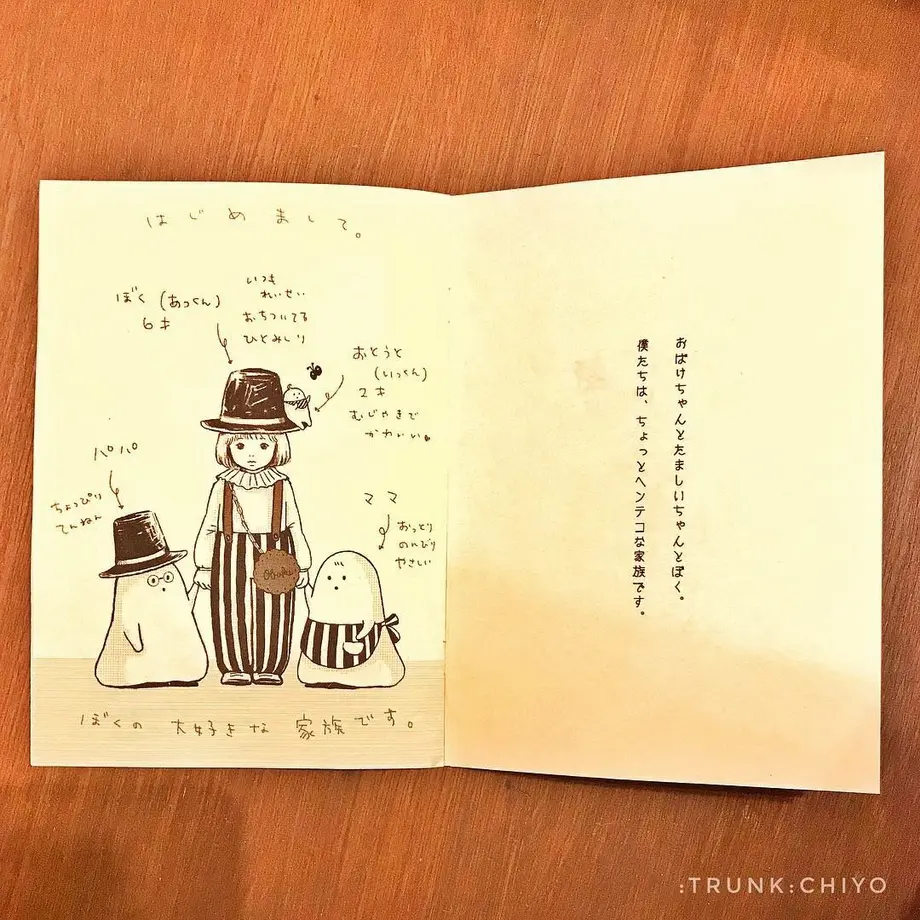 はじめまして。
ぼく (あっくん)
6才
いつも
れいせい
おちついてる
ひとみしり
おとうと
(いっくん)
2才
むじゃきで
かわいい
パパ
ちょっぴり
てんねん
ママ
おっとり
のんびり
やさしい
ぼくの 大好きな 家族です。
おばけちゃんとたましいちゃんとぼく。
僕たちは、ちょっとヘンテコな家族です。
:TRUNK:CHIYO